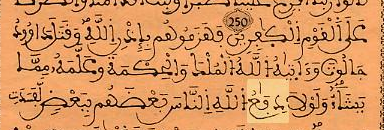 ربنا افرغ علينا صبرا وثبت اقدامنا وانصرنا
على القوم الكٰفرين 250 فهزموهم بإذن الله وقتل داوۥد
جالوت وءاتيٰه الله الملك والحكمة وعلمه مما
يشاء ولولا دفٰع الله الناس بعضهم ببعض لفسدت